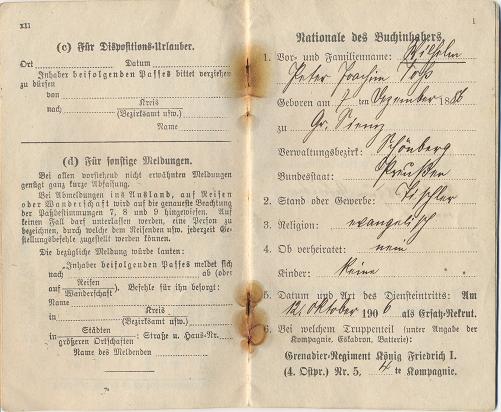 XII
(c) Für Dispositions-Urlauber.
Ort Datum
Inhaber beifolgenden Passes bittet verziehen
zu dürfen
von
Kreis
nach
(Bezirksamt usw.)
Name
(d) Für sonstige Meldungen.
Bei allen vorstehend nicht erwähnten Meldungen
genügt ganz kurze Abfassung.
Bei Abmeldungen ins Ausland, auf Reisen
oder Wanderschaft wird auf die genaueste Beachtung
der Paßbestimmungen 7, 8 und 9 hingewiesen. Auf
keinen Fall darf unterlassen werden, eine Person zu
bezeichnen, durch welche dem Reisenden usw. jederzeit Ge-
stellungsbefehle zugestellt werden können.
Die bezügliche Meldung würde lauten:
„Inhaber beifolgenden Passes meldet sich
nach ab (oder
Reisen
auf ). Befehle für ihn besorgt:
Wanderschaft
Name
Kreis
in
(Bezirksamt usw.)
Städten
in Straße u. Haus-Nr.
größeren Ortschaften
Name des Meldenden
1
Nationale des Buchinhabers.
1. Vor- und Familienname: Wilhelm
Peter Joachim Voß
Geboren am 7 ten Dezember 1886
zu Gr.
Verwaltungsbezirk: Schönberg
Bundesstaat: Preußen
2. Stand oder Gewerbe: Tischler
3. Religion: evangelisch
4. Ob verheiratet: nein
Kinder: keine
5. Datum und Art des Diensteintritts: Am
12. Oktober 1906 als Ersatz-Rekrut.
6. Bei welchem Truppenteil (unter Angabe der
Kompagnie, Eskadron, Batterie):
Grenadier-Regiment König Friedrich I.
(4. Ostpr.) Nr. 5, 4te Kompagnie.